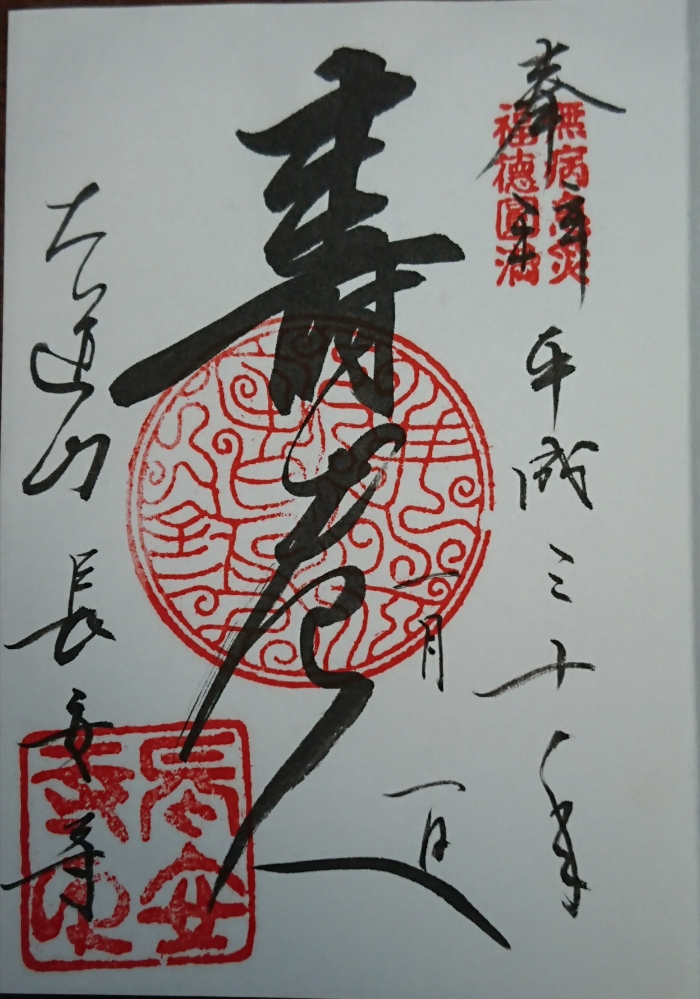 奉拝
無病息災
福德圓満
平成三十年
一月一日
壽老人
大道山 長安寺
長安
寺印